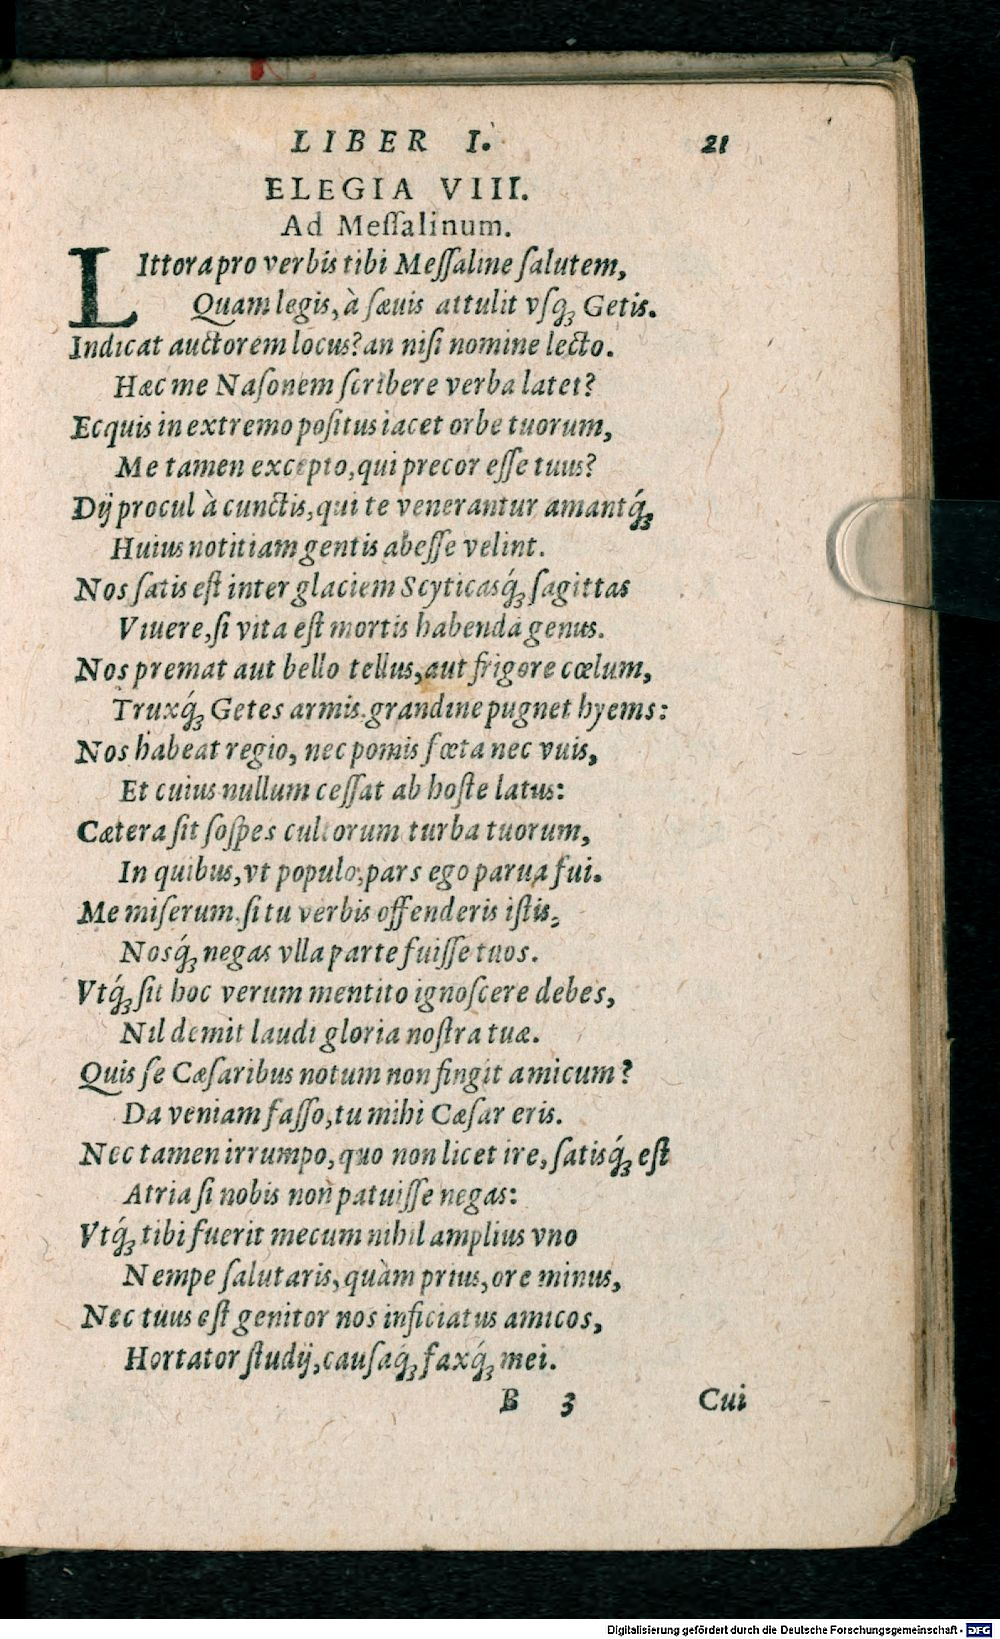 LIBER I. 21
ELEGIA VIII.
Ad Meſſalinum.
LIttora pro verbis tibi Meſſaline ſalutem,
Quam legis, à ſæuis attulit vſq́; Getis.
Indicat auctorem locus? an niſi nomine lecto.
Hæc me Naſonem ſcribere verba latet?
Ecquis in extremo poſitus iacet orbe tuorum,
Me tamen excepto, qui precor eſſe tuus?
Dij procul à cunctis, qui te venerantur amantq́;
Huius notitiam gentis abeſſe velint.
Nos ſatis eſt inter glaciem Scyticasq́; ſagittas
Viuere, ſi vita eſt mortis habenda genus.
Nos premat aut bello tellus, aut frigore cœlum,
Truxq́; Getes armis. grandine pugnet hyems:
Nos habeat regio, nec pomis fœta nec vuis,
Et cuius nullum ceſſat ab hoſte latus:
Cætera ſit ſoſpes cultorum turba tuorum,
In quibus, vt populo, pars ego parua fui.
Me miſerum. ſi tu verbis offenderis iſtis,
Nosq́; negas vlla parte fuiſſe tuos.
Vtq́; ſit hoc verum mentito ignoſcere debes,
Nil demit laudi gloria noſtra tuæ.
Quis ſe Cæſaribus notum non fingit amicum?
Da veniam faſſo, tu mihi Cæſar eris.
Nec tamen irrumpo, quo non licet ire, ſatisq́; eſt
Atria ſi nobis non patuiſſe negas:
Vtq́; tibi fuerit mecum nihil amplius vno
Nempe ſalutaris, quàm prius, ore minus,
Nec tuus eſt genitor nos inficiatus amicos,
Hortator ſtudij, cauſaq́; faxq́; mei.
B 3 Cui
Digitalisierung gefördert durch die Deutsche Forschungsgemeinschaft - DFG